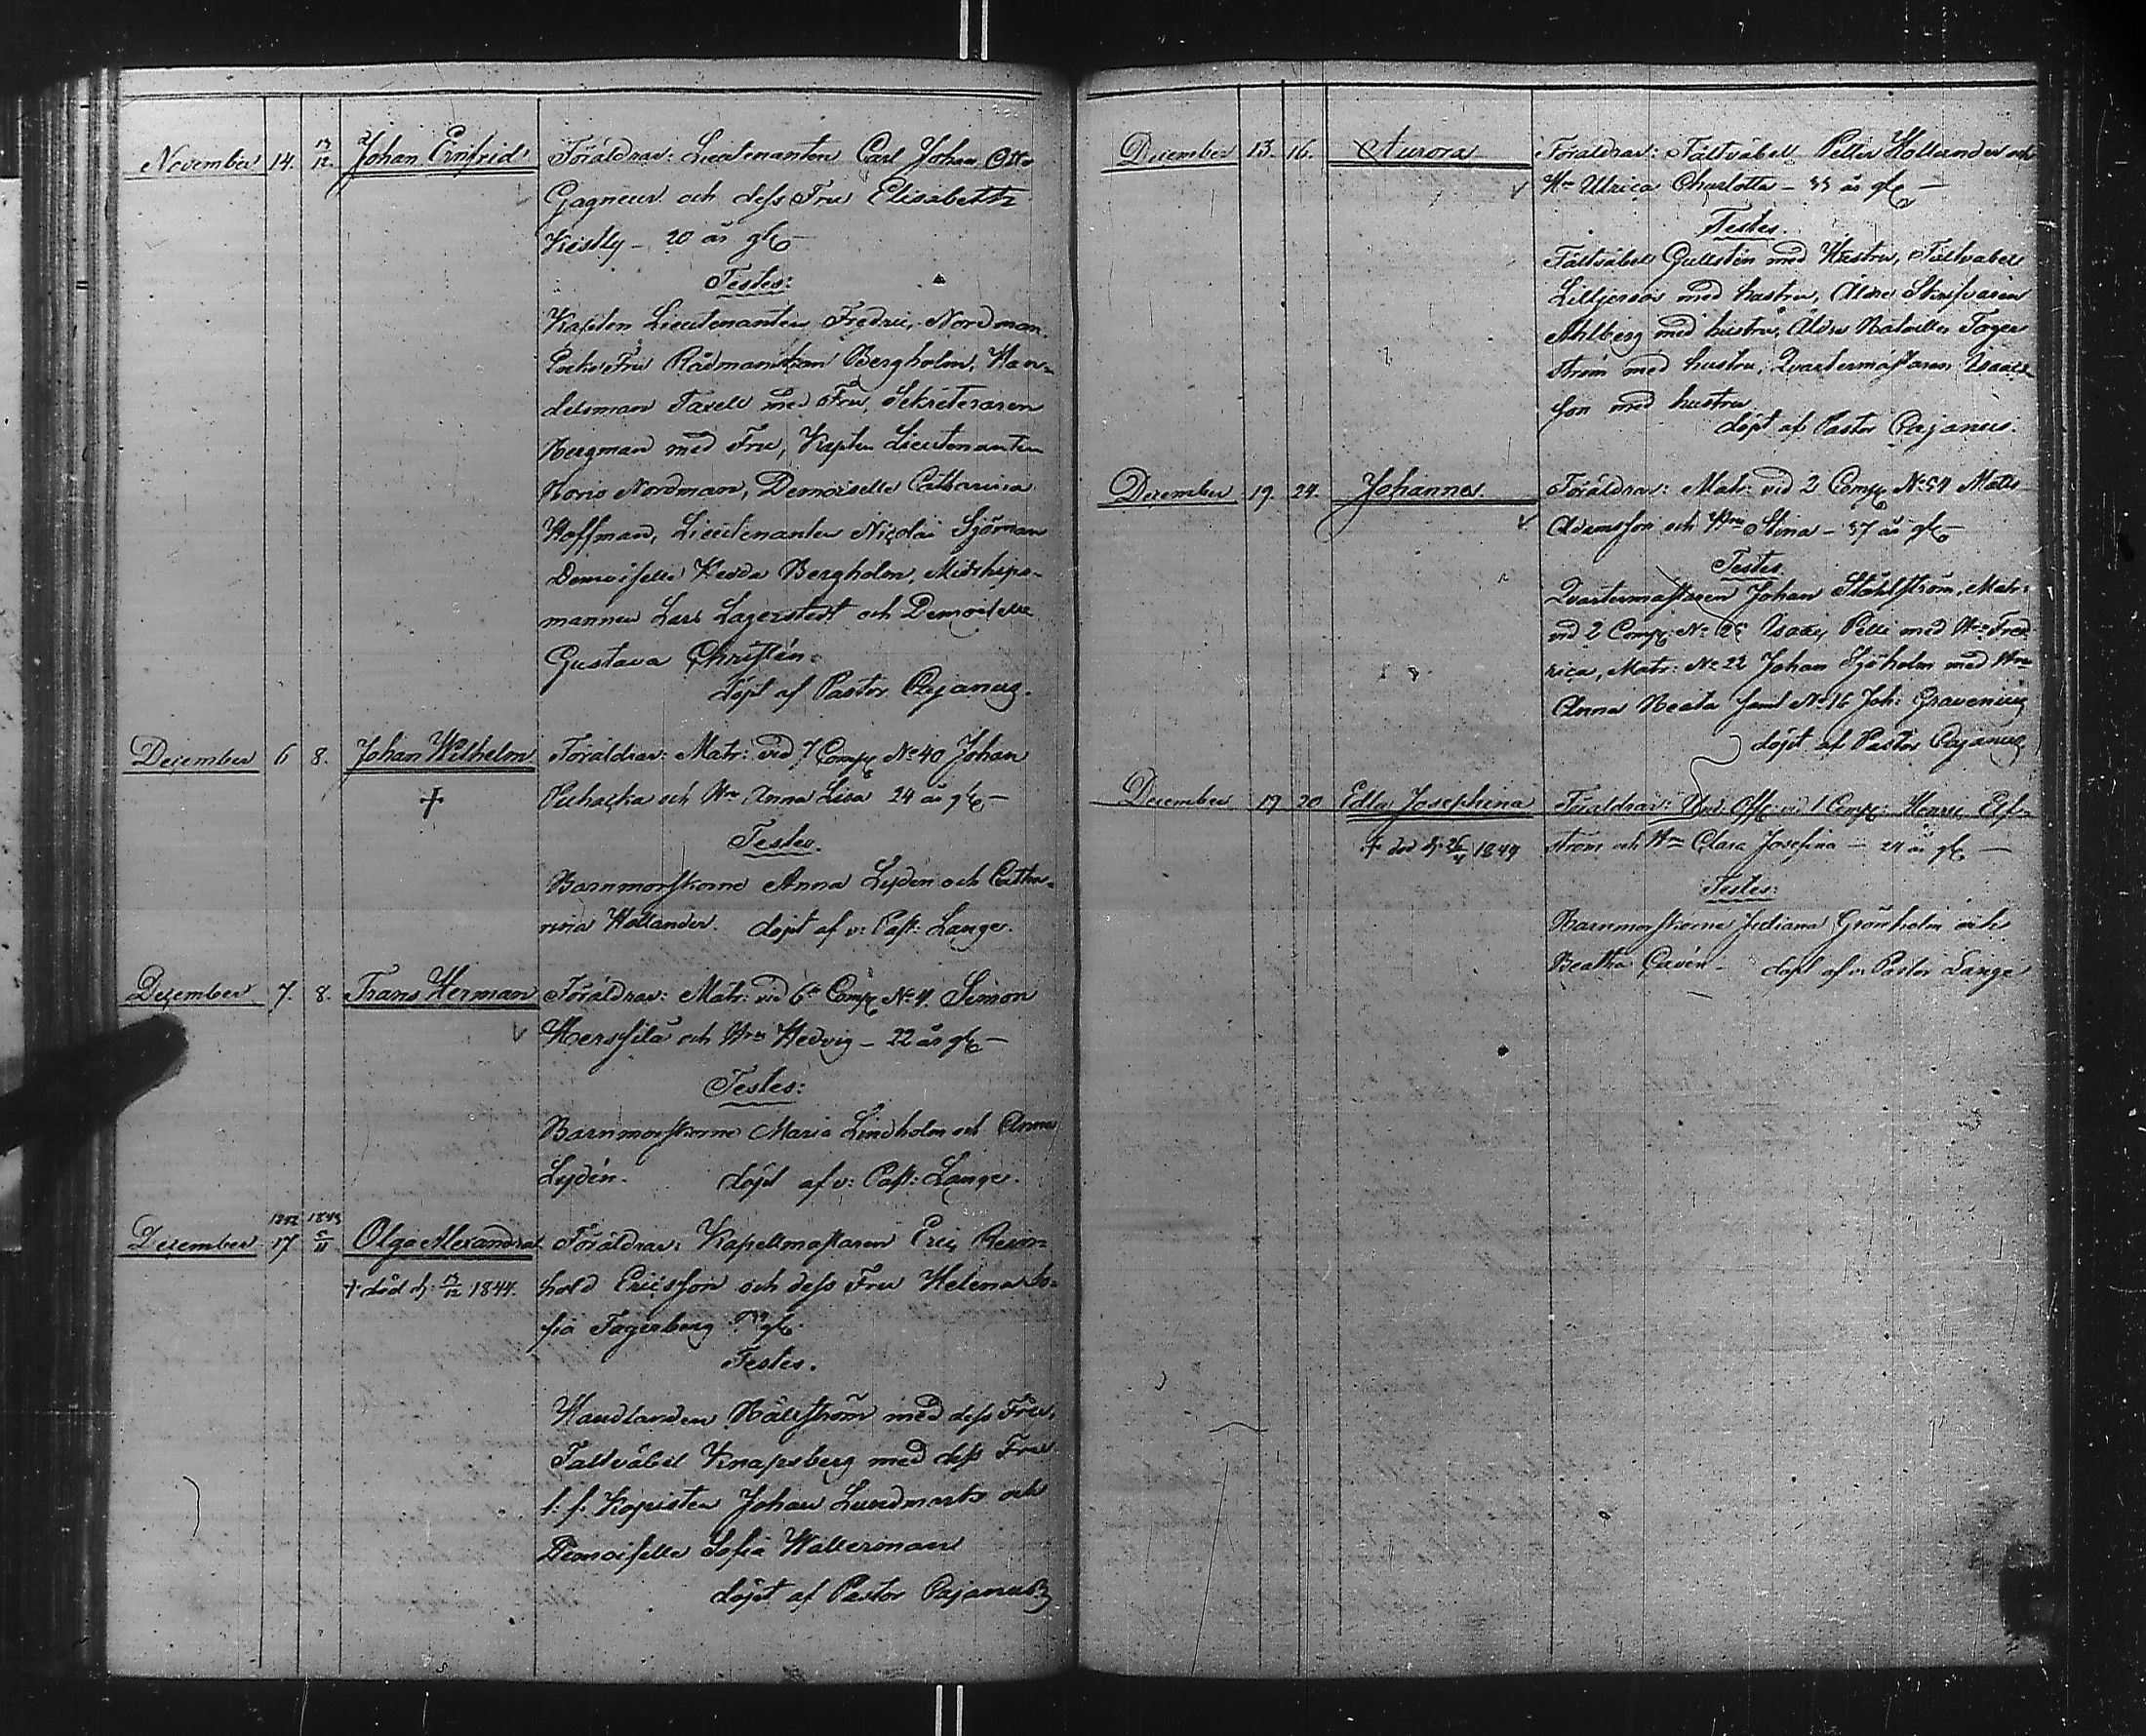 November 14. 13/12. Johan Ernfrid Föräldrar: Lieutenanten Carl Johan Otto
Gagneur och dess Fru Elisabeth
20 år gl
Testes:
Kapten Lieutenanten Fredric Nordman
Fru Rådmanskan Bergholm, Han-
delsman Taxell med Fru, Sekreteraren
Bergman med Fru, Kapten Lieutenanten
Boris Nordman, Demoiselle Catharina
Hoffman, Lieutenanten Nicolai Sjöman
Demoiselle Hedda Bergholm, Midships-
mannen Lars Lagerstedt och Demoiselle
Gustava Christlén.
döpt af Pastor Cajanus.
December 6 8. Johan Wilhelm Föräldrar: Matr: vid 7 Comp: No 40 Johan
och Hru Anna Lisa 24 år gl
Testes.
Barnmorskorne Anna Lydén och Catha-
rina Hollander. döpt af v: Past: Lange.
December 7. 8. Frans Herman Föräldrar: Matr: vid 6te Comp No 4. Simon
Hersfilä och Hru Hedvig - 22 år gl
Testes:
Barnmorskorne Maria Lindholm och Anna
Lydén. döpt af v: Past: Lange.
1842 1843
December 17 5/11 Olga Alexandra Föräldrar: Kapellmästaren Eric Rein-
† död d: 13/12 1844. hold Ericsson och dess Fru Helena So-
fia Fagerberg gl
Testes.
Handlanden Källström med dess Fru,
Fältväbel Knapsberg med dess Fru
t. f. Kopisten Johan Lundmark och
Demoiselle Sofia Walterman
döpt af Pastor Cajanus
December 13. 16. Aurora Föräldrar: Fältväbell Petter Hollander och
Hu Ulrica Charlotta - 33 år gl
Testes.
Fältväbel Gullstén med Hustru, Fältväbell
Lilljerson med hustru, Äldre Skrifvaren
Ahlberg med hustru, Äldre Båtväller Fager
ström med hustru, Qvartermästaren Isaacs-
son med hustru
döpt af Pastor Cajanus.
December 19. 24. Johannes Föräldrar: Matr: vid 2 Comp No 54 Mats
Adamsson och Hru Stina - 37 år gl
Testes
Qvartermästaren Johan Ståhlström, Matr:
vid 2 Comp: No Isaac Pelli med Hru Fred
rica, Matr: No 22 Johan Sjöholm med Hru
Anna Beata samt No 16 Joh: Gravenius
döpt af Pastor Cajanus
December 19 20 Edla Josephina Föräldrar: Und. Off. vid 1 Comp: Henric Elf-
† död d: 26/4 1849 ström och Hru Clara Josefina - 24 år gl
Testes:
Barnmorskorne Juliana Grönholm och
Beatha Cavén - döpt af v: Pastor Lange